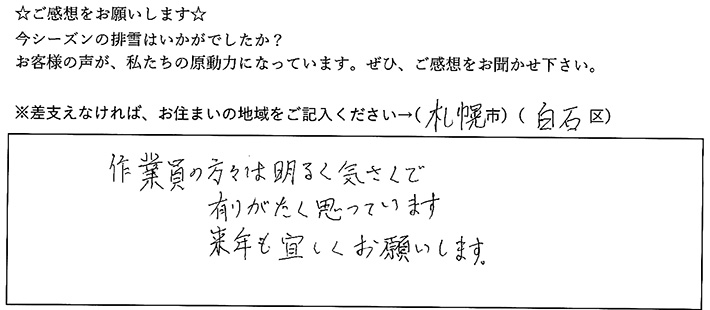 ☆ご感想をお願いします☆
今シーズンの排雪はいかがでしたか？
お客様の声が、私たちの原動力になっています。ぜひ、ご感想をお聞かせ下さい。
※差支えなければ、お住まいの地域をご記入ください→( 札幌市) ( 白石 区)
作業員の方々は明るく気さくで
有りがたく思っています
来年も宜しくお願いします。